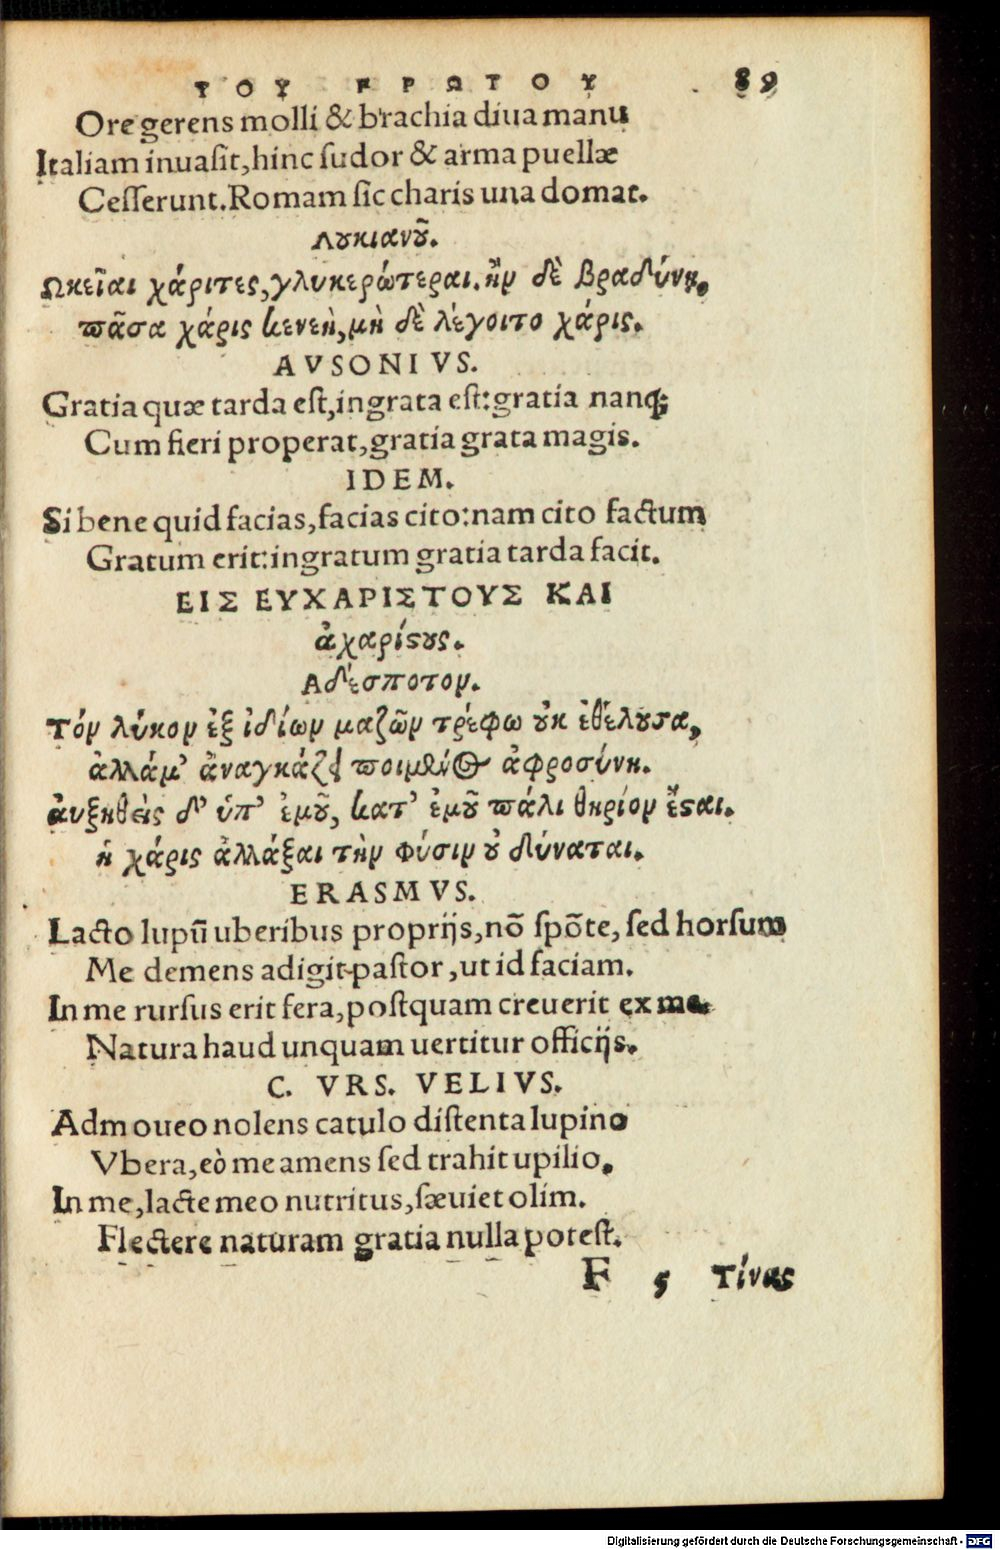 ΤΟΥ ΠΡΩΤΟΥ 89
Ore gerens molli & brachia diua manu
Italiam inuasit, hinc sudor & arma puellæ
Cesserunt. Romam sic charis una domat.
Λουκιανοῦ.
Ωκεῖαι χάριτες, γλυκερώτεραι. ἢν δὲ βραδύνῃ,
πᾶσα χάρις κενεὴ, μὴ δὲ λέγοιτο χάρις.
AVSONIVS.
Gratia quæ tarda est, ingrata est: gratia nanq;
Cum fieri properat, gratia grata magis.
IDEM.
Si bene quid facias, facias cito: nam cito factum
Gratum erit: ingratum gratia tarda facit.
ΕΙΣ ΕΥΧΑΡΙΣΤΟΥΣ ΚΑΙ
ἀχαρίστους.
Αδέσποτον.
Τὸν λύκον ἐξ ἰδίων μαζῶν τρέφω οὐκ ἐθέλουσα,
ἀλλά μ' ἀναγκάζει ποιμένος ἀφροσύνη.
ἀυξηθεὶς δ' ὑπ' ἐμοῦ, κατ' ἐμοῦ πάλι θηρίον ἔσται.
ἡ χάρις ἀλλάξαι τὴν φύσιν οὐ δύναται.
ERASMVS.
Lacto lupū uberibus proprijs, nō spōte, sed horsum
Me demens adigit pastor, ut id faciam.
In me rursus erit fera, postquam creuerit ex me.
Natura haud unquam uertitur officijs.
C. VRS. VELIVS.
Admoueo nolens catulo distenta lupino
Vbera, eò me amens sed trahit upilio.
In me, lacte meo nutritus, sæuiet olim.
Flectere naturam gratia nulla potest.
F 5 Τίνας
Digitalisierung gefördert durch die Deutsche Forschungsgemeinschaft - DFG